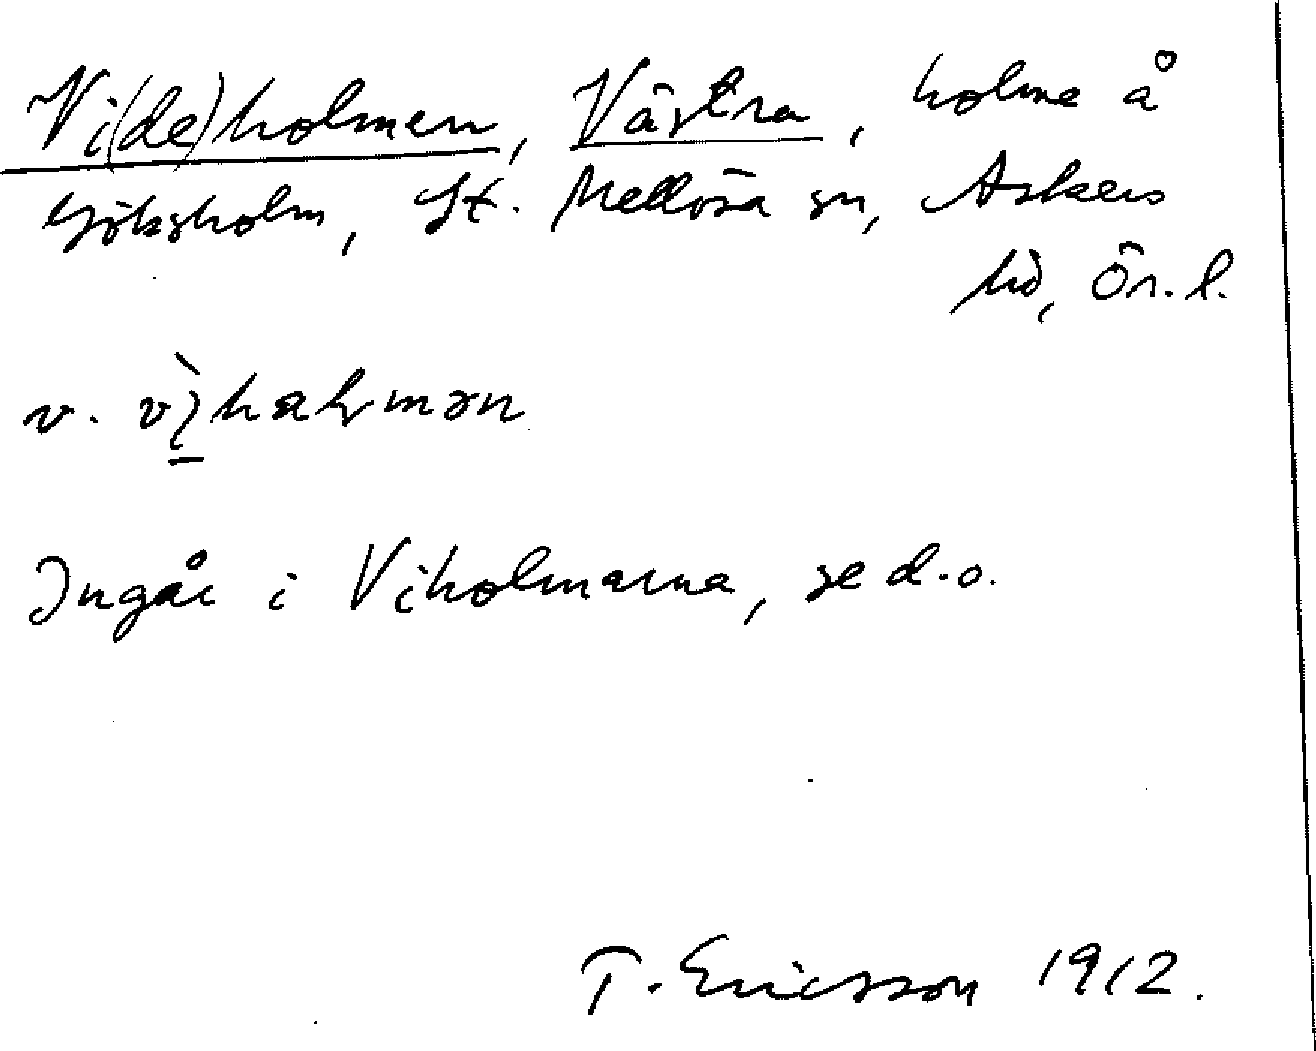 Vi(de)holmen, Västra, holme å
Göksholm, St. Mellösa sn, Askers
hd, Ör. l.
v.
Ingår i Viholmarna, se d.o.
T. Ericsson 1912.